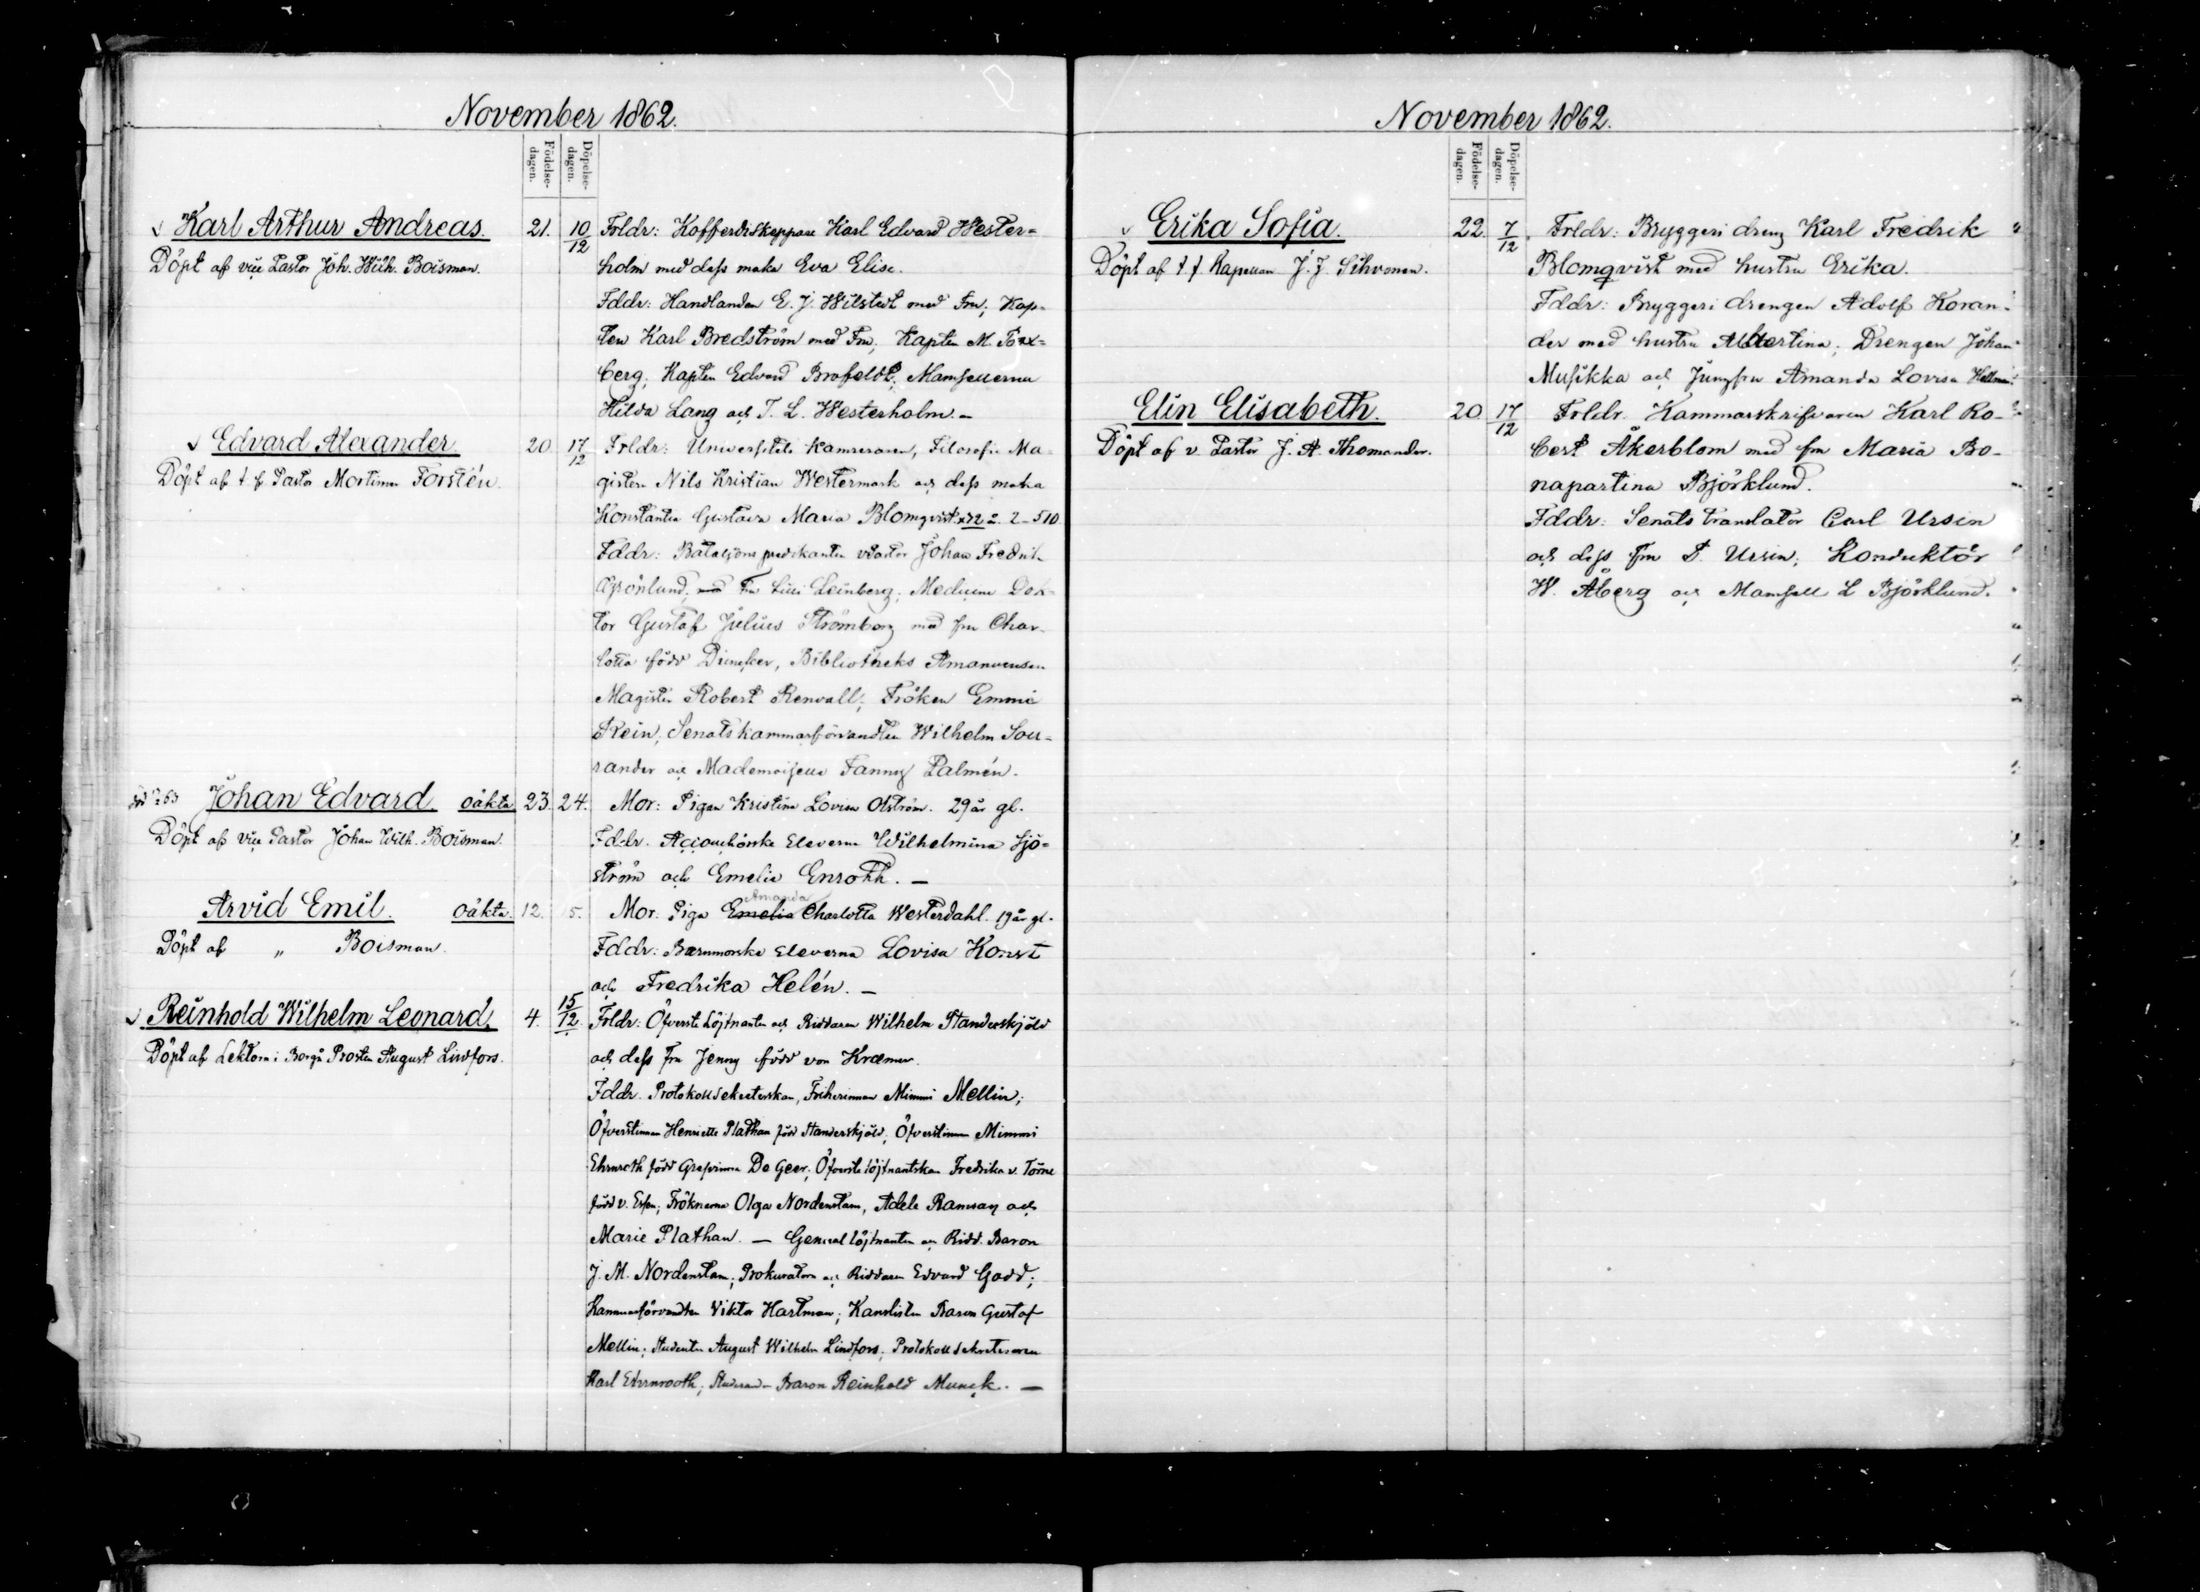 November 1862.
Födelse-dagen.
Döpelse-dagen.
Karl Arthur Andreas. 21. 10/12 Frldr: Kofferdiskeppare Karl Edvard Wester=
Döpt af vice Pastor Joh. Wilh. Boisman. holm med dess maka Eva Elise.
Fddr: Handlanden E. J. Wilstedt med Fru; Kap-
ten Karl Bredström med Fru; Kapten M. Forx=
berg; Kapten Edvard Brofeldt; Mamsellerna
Hilda Lang och T. L. Westerholm. –
Edvard Alexander. 20 17/12 Frldr: Universitets Kamreraren, Filosofie Ma-
Döpt af t. f. Pastor Mortimer Forstén. gistern Nils Kristian Westermark och dess maka
Konstantia Gustava Maria Blomqvist
Fddr: Bataljons predikanten Johan Fredrik
Grönlund, med Fru Leinberg; Medicine Dok-
tor Gustaf Julius Strömborg med fru Char-
lotta född Duncker, Bibliotheks Amanuensen
Magister Robert Renvall; Fröken Emmi
Rein; Senatskammarförvandten Wilhelm Sou-
rander och Mademoiselle Fanny Palmén.
Johan Edvard. oäkta 23. 24. Mor: Pigan Kristina Lovisa Olström. 29 år gl.
Döpt af vice Pastor Johan Wilh. Boisman. Fddr. Eleverna Wilhelmina Sjö=
ström och Emelie Enroth. –
Amanda
Arvid Emil. Oäkta. 12. 5. Mor. Piga Emelia Charlotta Westerdahl. 19 år gl.
Döpt af „ Boisman. Fddr: Barnmorske Eleverna Lovisa Konst
och Fredrika Helén. –
Reinhold Wilhelm Leonard. 4. 15/12 Frldr: Öfverste Löjtnanten och Riddaren Wilhelm Standerskjöld
Döpt af Lektorn i Borgå Prosten August Lindfors. och dess fru Jenny född von Kraemer.
Fddr. Protokollsekreterskan, Friherinnan Mimmi Mellin;
Öfverstinnan Henriette Plathan född Standerskjöld; Öfverstinnan Mimmi
Ehrnroth född Grefvinna De Geer; Öfverste löjtnantskan Fredrika v. Törne
född v. Essen; Fröknarna Olga Nordenstam, Adele Ramsay och
Marie Plathan. — General löjtnanten och Ridd. Baron
J. M. Nordenstam; Prokuratorn och Riddaren Edvard Gadd;
Kammarförvandten Viktor Hartman; Kanslisten Baron Gustaf
Mellin; Studenten August Wilhelm Lindfors; Protokollsekreteraren
Karl Ehrnrooth; Baron Reinhold Munck. —
November 1862.
Födelse-dagen.
Döpelse-dagen.
Erika Sofia. 22. 7/12 Frldr: Bryggeri dreng Karl Fredrik
Döpt af t. f. Kapellan J. J. Sihvonen. Blomqvist med hustru Erika.
Fddr: Bryggeri drengen Adolf Koran-
der med hustru Albertina; Drengen Johan
Musikka och Jungfru Amanda Lovisa Hellman.
Elin Elisabeth. 20 17/12 Frldr. Kammarskrifvaren Karl Ro-
Döpt af v. Pastor J. A. Thomander. bert Åkerblom med fru Maria Bo-
napartina Björklund.
Fddr: Senats translator Carl Ursin
och dess fru Ursin; Konduktör
W. Åberg och Mamsell L Björklund.